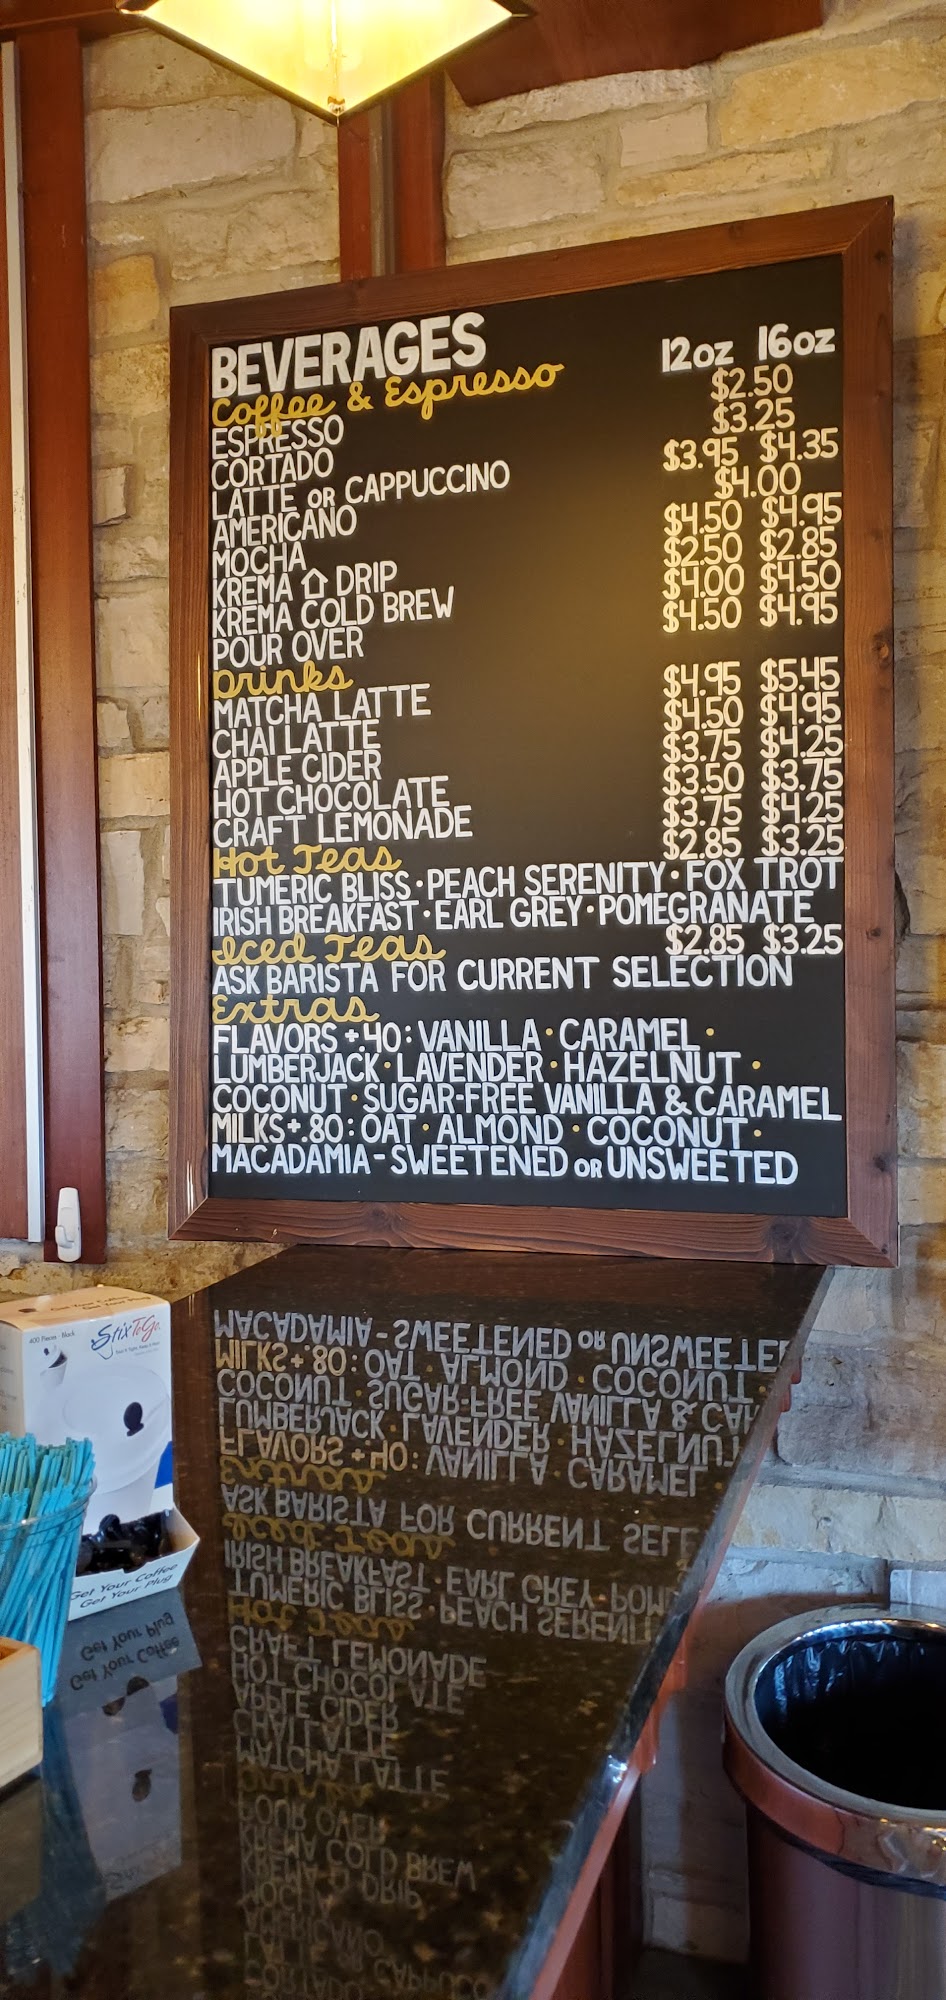 BEVERAGES 12oz 16oz
Coffee & Espresso
ESPRESSO $2.50
CORTADO $3.25
LATTE OR CAPPUCCINO $3.95 $4.35
AMERICANO $4.00
MOCHA $4.50 $4.95
KREMA DRIP $2.50 $2.85
KREMA COLD BREW $4.00 $4.50
POUR OVER $4.50 $4.95
Drinks
MATCHA LATTE $4.95 $5.45
CHAI LATTE $4.50 $4.95
APPLE CIDER $3.75 $4.25
HOT CHOCOLATE $3.50 $3.75
CRAFT LEMONADE $3.75 $4.25
Hot Teas $2.85 $3.25
TUMERIC BLISS • PEACH SERENITY • FOX TROT
IRISH BREAKFAST • EARL GREY • POMEGRANATE
Iced Teas $2.85 $3.25
ASK BARISTA FOR CURRENT SELECTION
Extras
FLAVORS +.40: VANILLA • CARAMEL •
LUMBERJACK • LAVENDER • HAZELNUT •
COCONUT • SUGAR-FREE VANILLA & CARAMEL
MILKS +.80: OAT • ALMOND • COCONUT •
MACADAMIA - SWEETENED OR UNSWEETED
400 Pieces - Black
Stix ToGo
Get Your Coffee
Get Your Plug